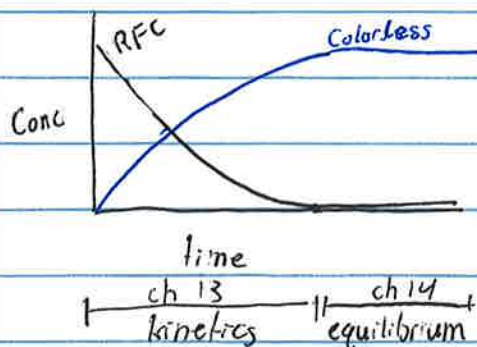 RFC
Colorless
Conc
time
ch 13
ch 14
kinetics
equilibrium